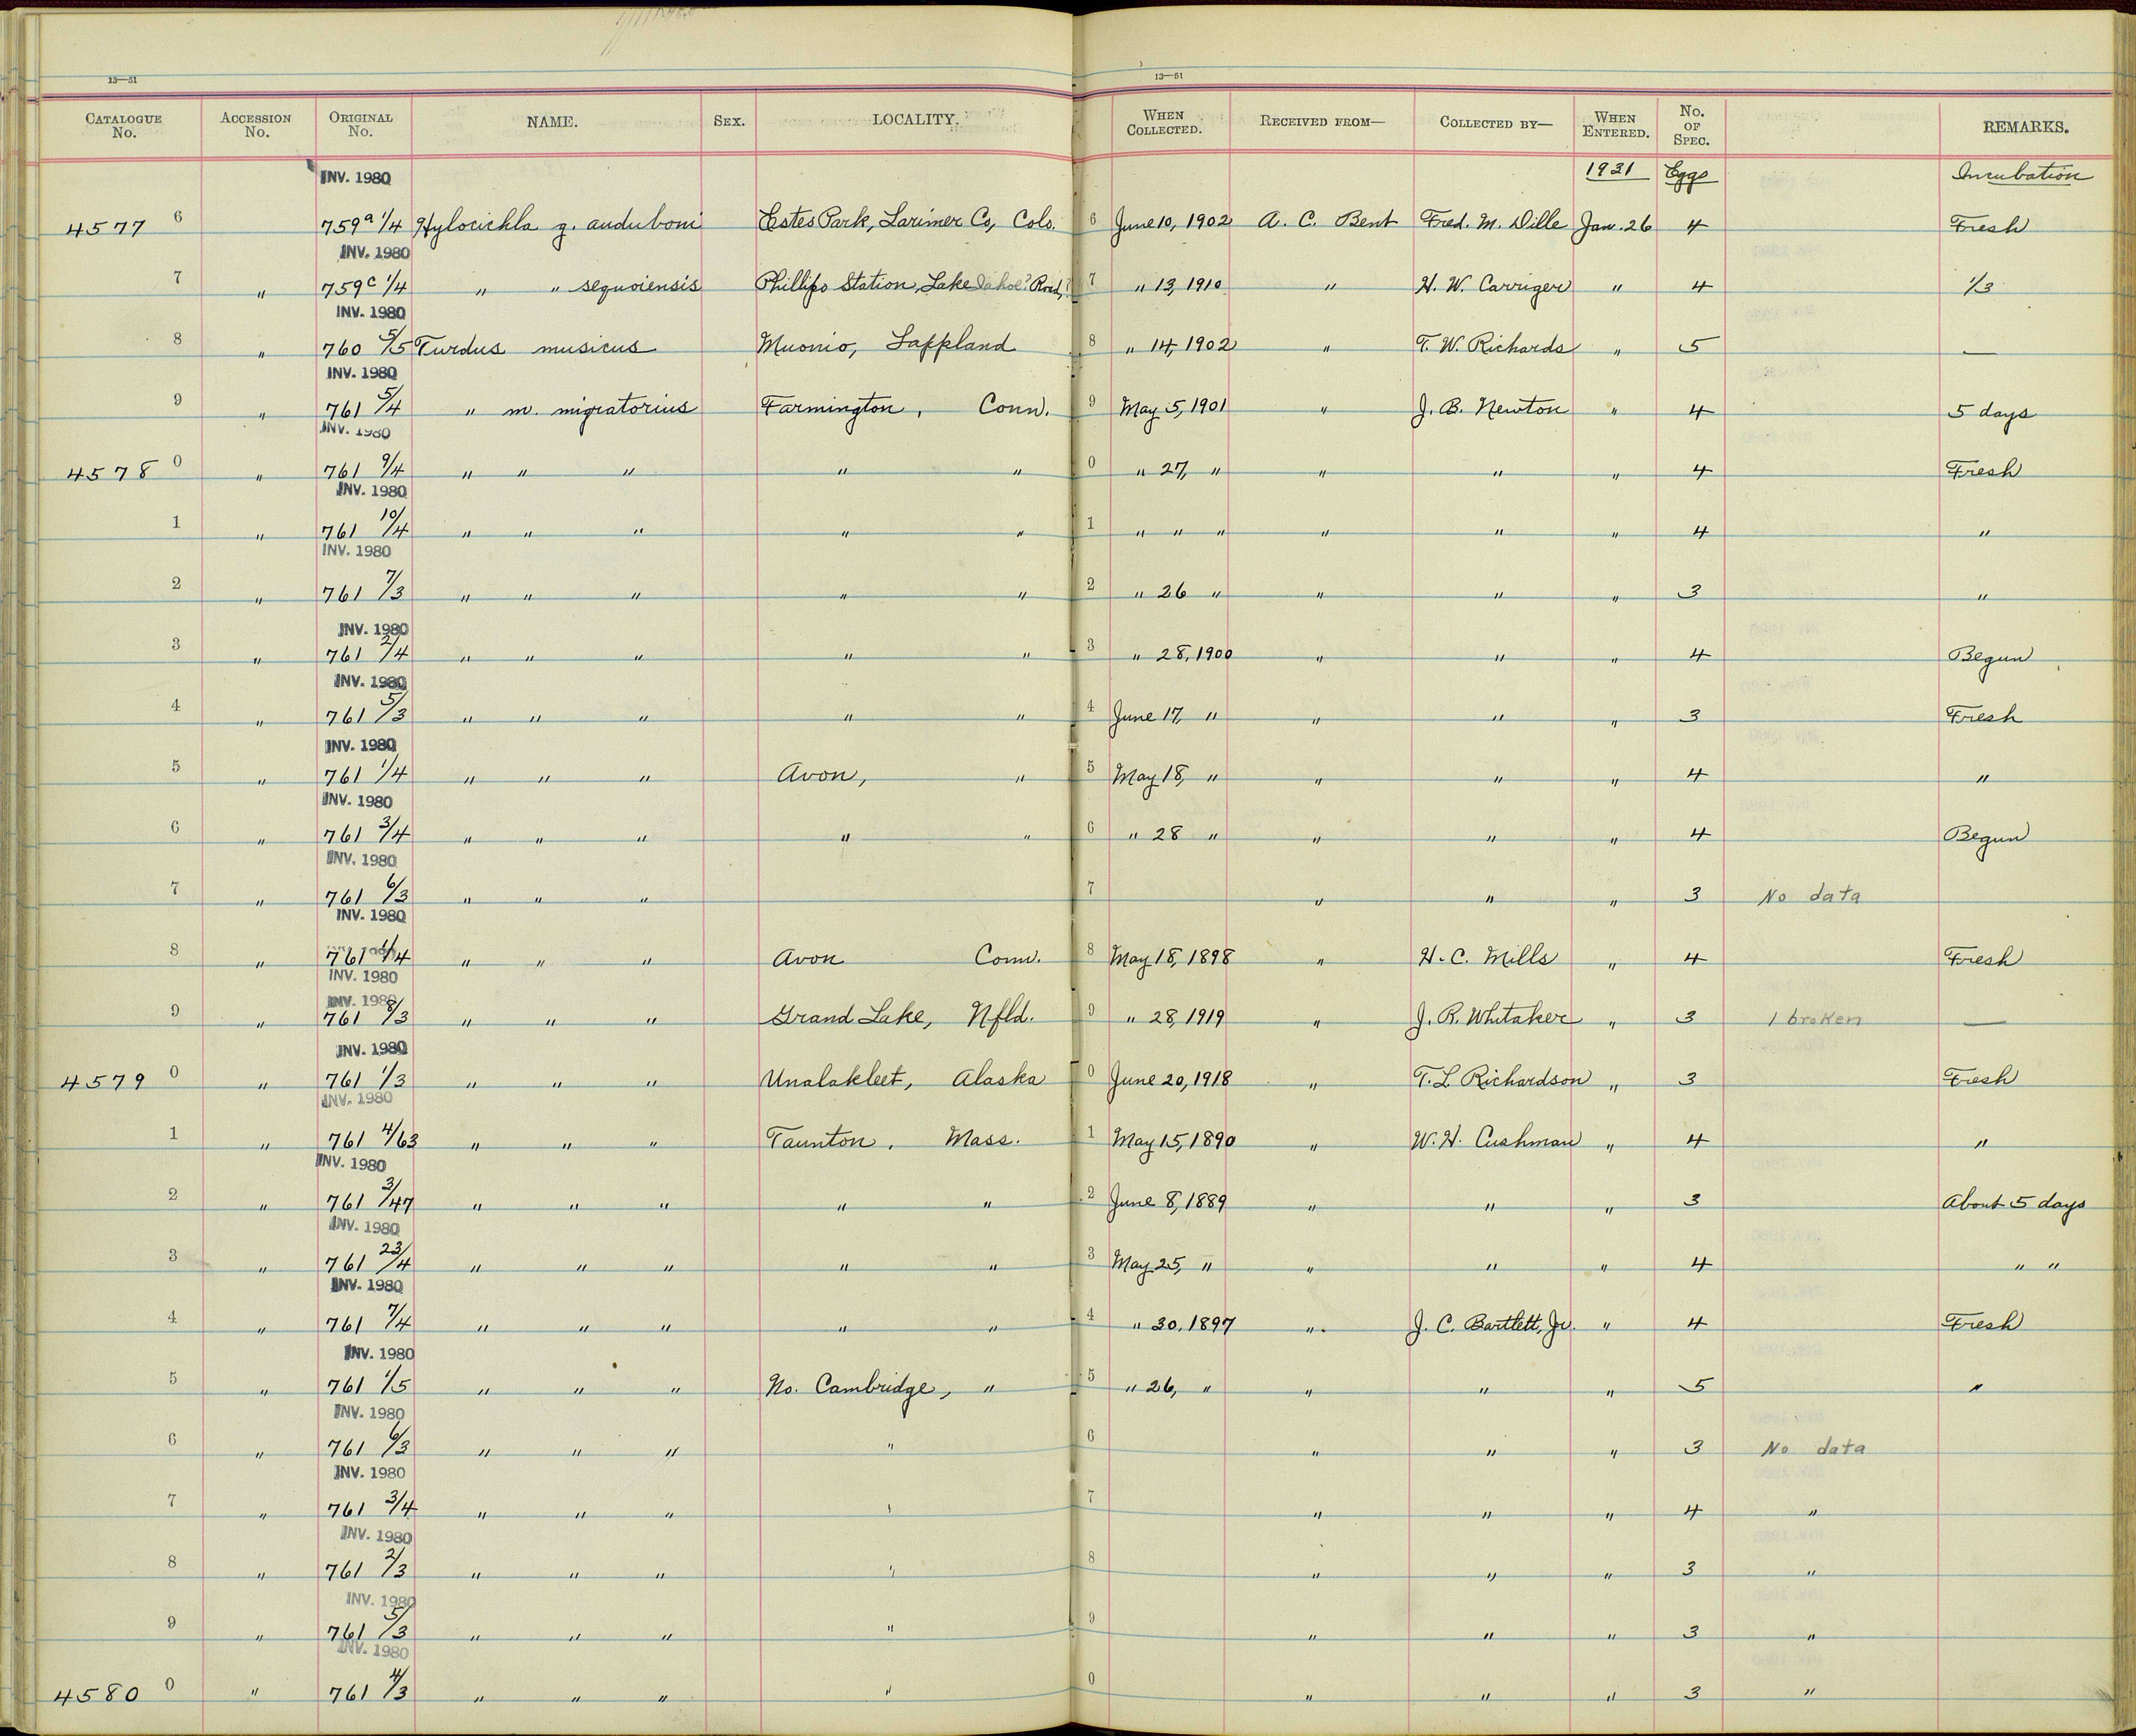 13—51 13—51
CATALOGUE No. ACCESSION No. ORIGINAL No. NAME. SEX. LOCALITY. WHEN COLLECTED. RECEIVED FROM— COLLECTED BY— WHEN ENTERED. No. OF SPEC. REMARKS.
INV. 1980 1931 Eggs Incubation
4577 6 759a 1/4 Hylocichla g. auduboni Estes Park, Larimer Co, Colo. 6 June 10, 1902 A. C. Bent Fred. M. Dille Jan. 26 4 Fresh
INV. 1980
7 " 759c 1/4 " " sequoiensis Phillips Station, Lake Tahoe? Road, 7 " 13, 1910 " H. W. Carriger " 4 1/3
INV. 1980
8 " 760 5/5 Turdus musicus Muonio, Lappland 8 " 14, 1902 " T. W. Richards " 5 —
INV. 1980
9 " 761 5/4 " m. migratorius Farmington, Conn. 9 May 5, 1901 " J. B. Newton " 4 5 days
INV. 1980
4578 0 " 761 9/4 " " " " " 0 " 27, " " " " 4 Fresh
INV. 1980
1 " 761 10/4 " " " " " 1 " " " " " " 4 "
INV. 1980
2 " 761 7/3 " " " " " 2 " 26 " " " " 3 "
INV. 1980
3 " 761 2/4 " " " " " 3 " 28, 1900 " " " 4 Begun
INV. 1980
4 " 761 5/3 " " " " " 4 June 17, " " " " 3 Fresh
INV. 1980
5 " 761 1/4 " " " Avon, " 5 May 18, " " " " 4 "
INV. 1980
6 " 761 3/4 " " " " " 6 " 28 " " " " 4 Begun
INV. 1980
7 " 761 6/3 " " " 7 " " " 3 No data
INV. 1980
8 " 761 1/4 " " " Avon Conn. 8 May 18, 1898 " H. C. Mills " 4 Fresh
INV. 1980
INV. 1980
9 " 761 8/3 " " " Grand Lake, Nfld. 9 " 28, 1919 " J. R. Whitaker " 3 1 broken —
INV. 1980
4579 0 " 761 1/3 " " " Unalakleet, Alaska 0 June 20, 1918 " T. L. Richardson " 3 Fresh
INV. 1980
1 " 761 4/63 " " " Taunton, Mass. 1 May 15, 1890 " W. H. Cushman " 4 "
INV. 1980
2 " 761 3/47 " " " " " 2 June 8, 1889 " " " 3 About 5 days
INV. 1980
3 " 761 23/4 " " " " " 3 May 25, " " " " 4 " "
INV. 1980
4 " 761 7/4 " " " " " 4 " 30, 1897 " J. C. Bartlett, Jr. " 4 Fresh
INV. 1980
5 " 761 1/5 " " " No. Cambridge, " 5 " 26, " " " " 5 "
INV. 1980
6 " 761 6/3 " " " " 6 " " " 3 No data
INV. 1980
7 " 761 3/4 " " " " 7 " " " 4 "
INV. 1980
8 " 761 2/3 " " " " 8 " " " 3 "
INV. 1980
9 " 761 5/3 " " " " 9 " " " 3 "
INV. 1980
4580 0 " 761 4/3 " " " " 0 " " " 3 "